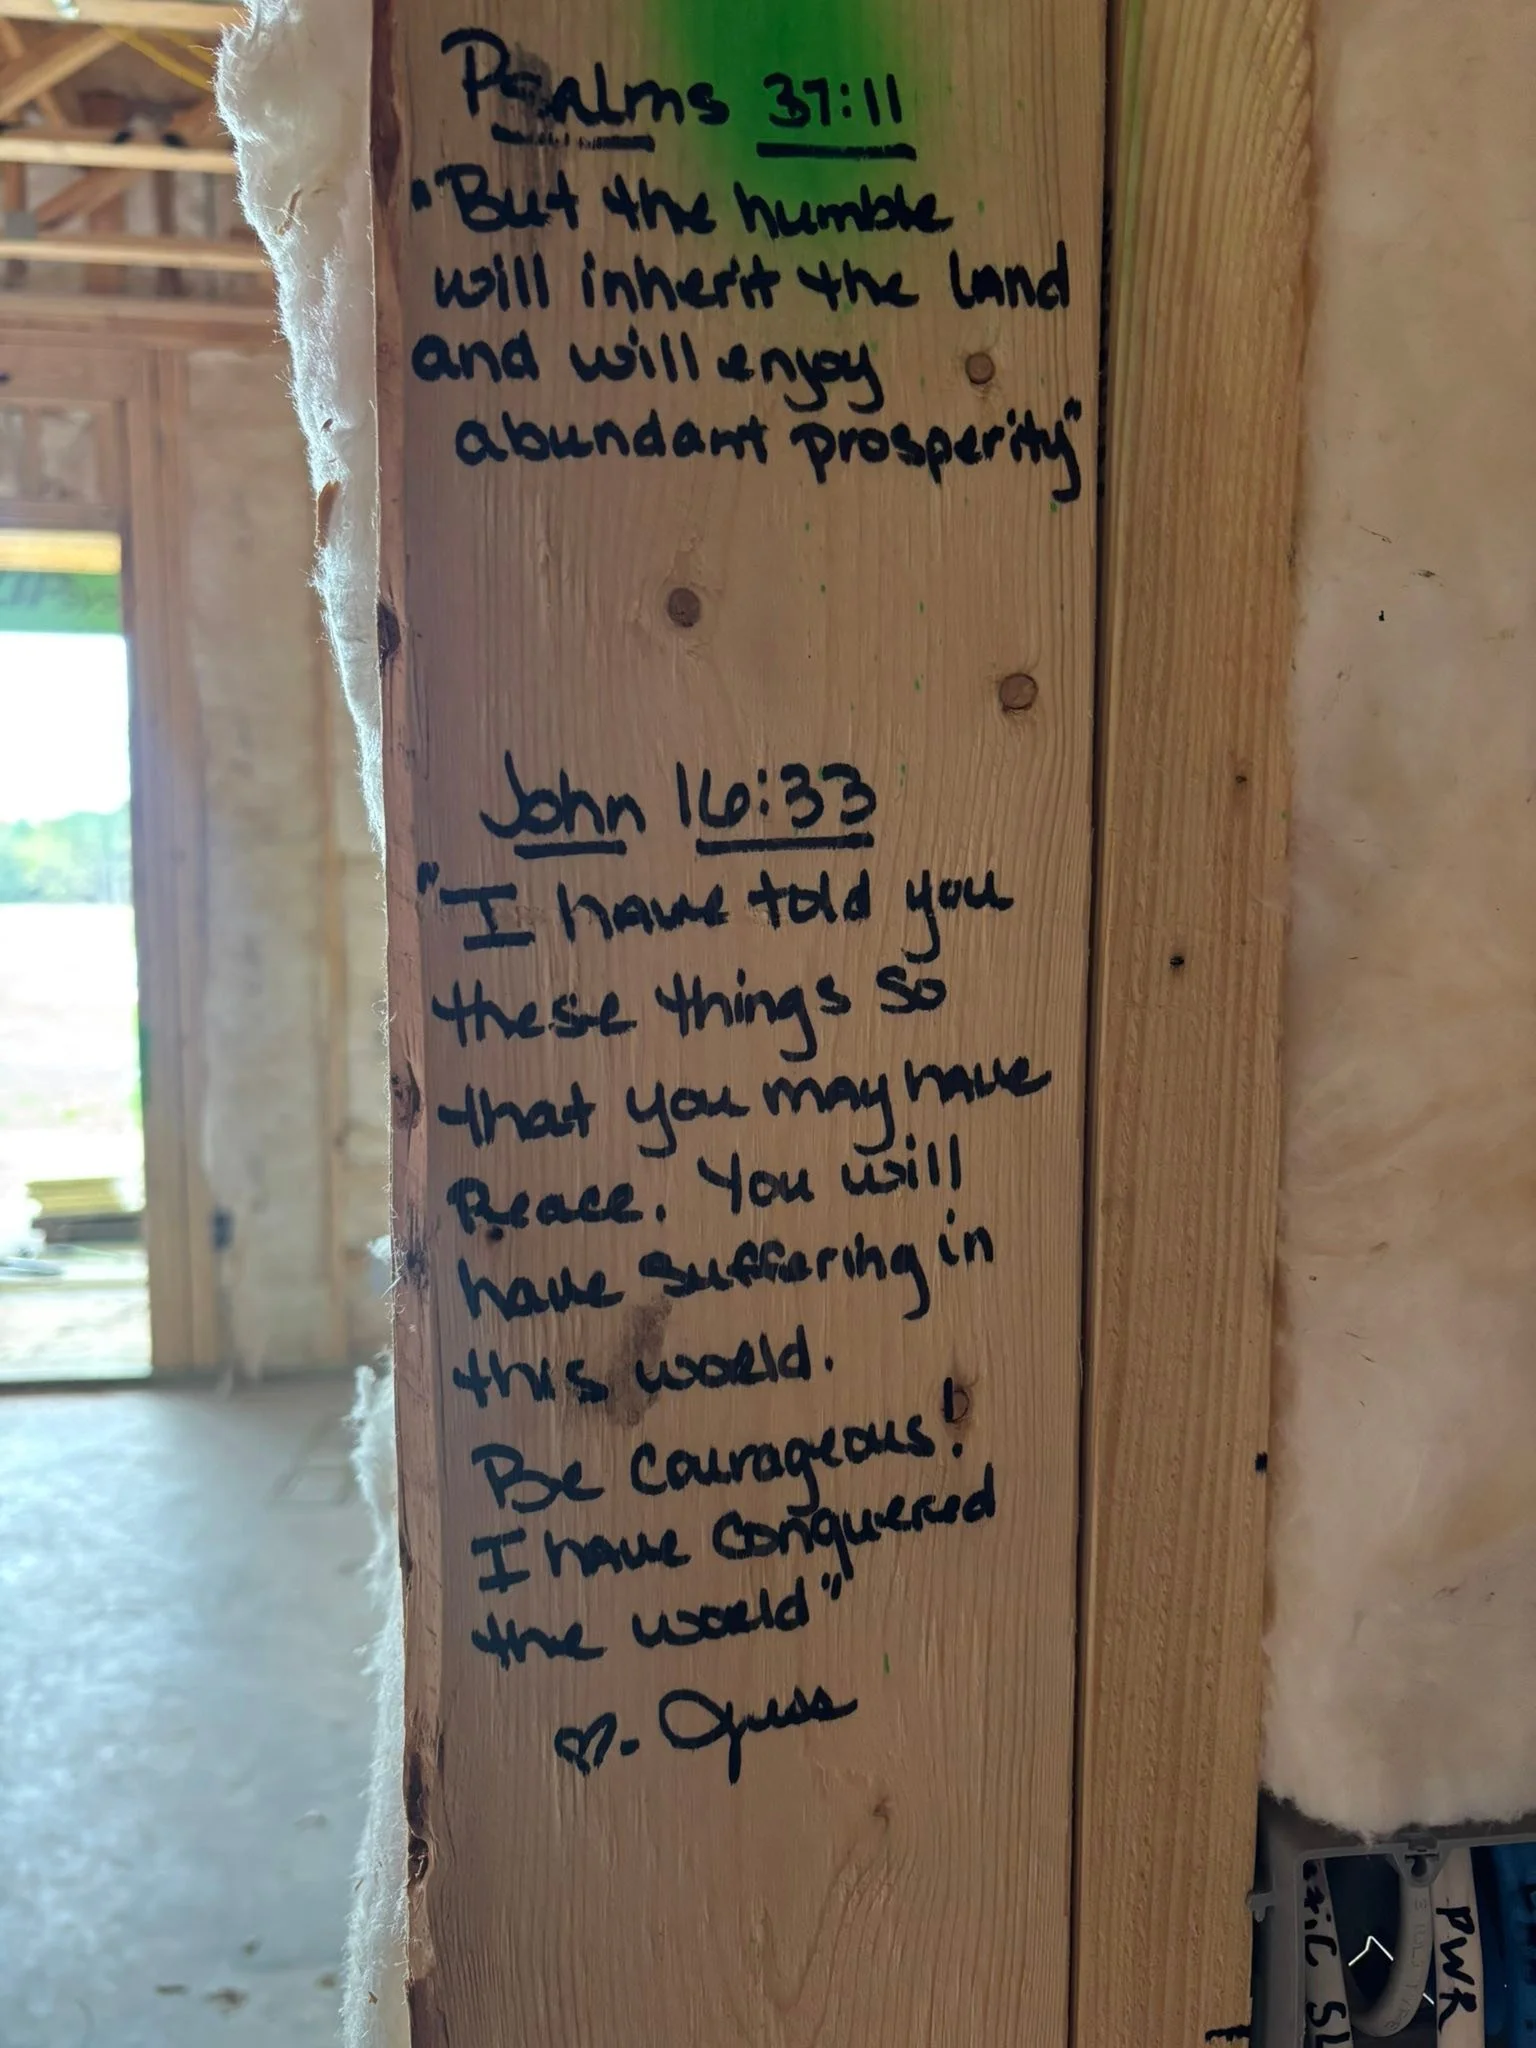 Psalms 37:11
"But the humble
will inherit the land
and will enjoy
abundant prosperity"
John 16:33
"I have told you
these things so
that you may have
Peace. You will
have suffering in
this world.
Be courageous!
I have conquered
the world"
PWR